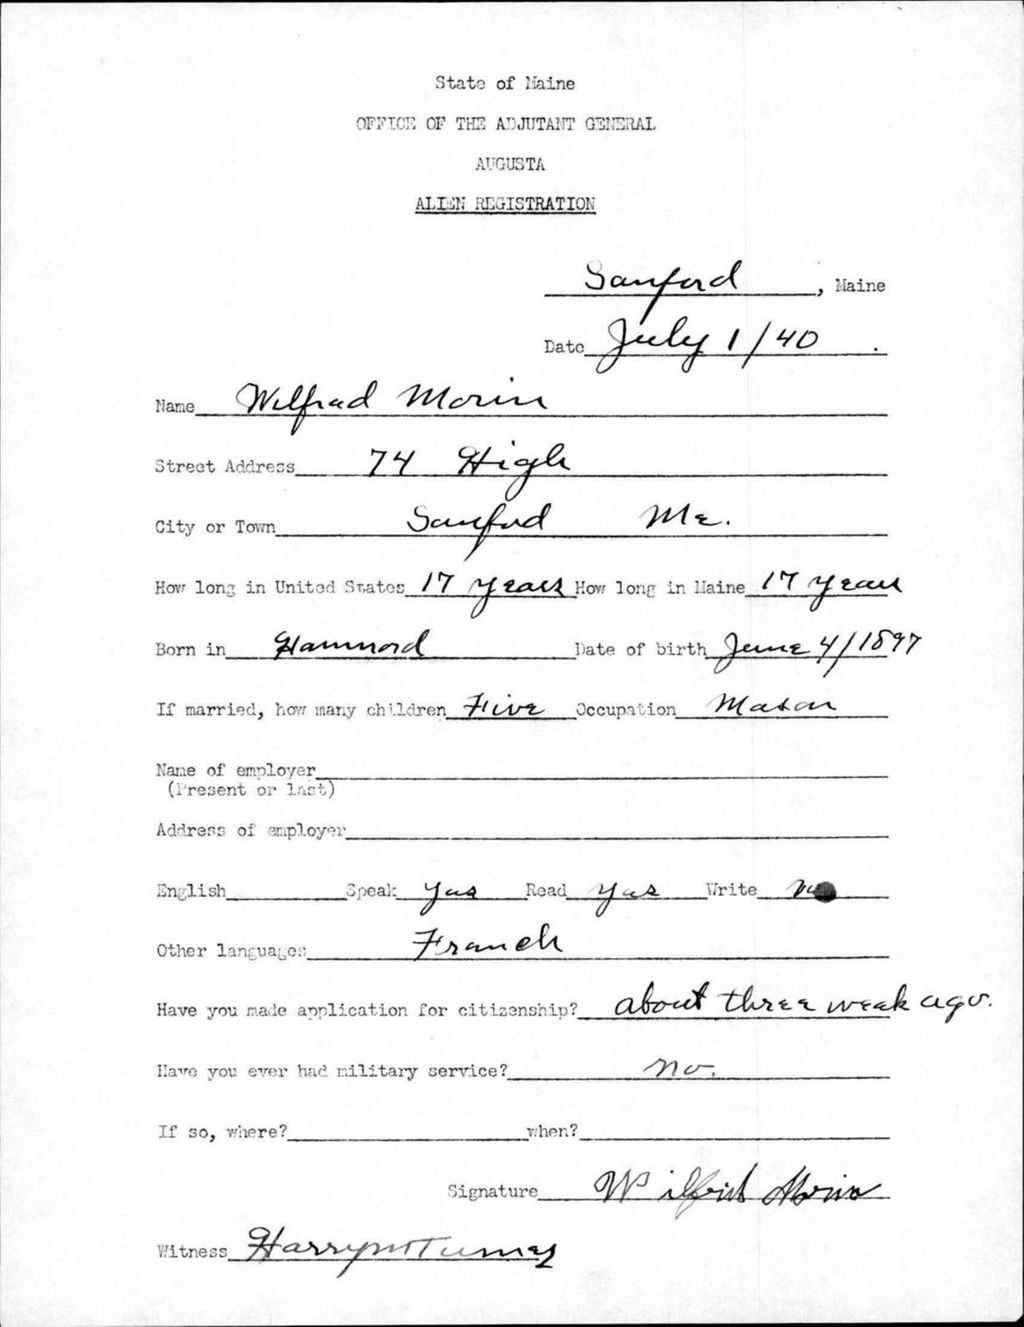 State of Maine
OFFICE OF THE ADJUTANT GENERAL
AUGUSTA
ALIEN REGISTRATION
Sanford, Maine
Date July 1/40.
Name Wilfrad Morin
Street Address 74 High
City or Town Sanford Me.
How long in United States 17 years How long in Maine 17 years
Born in Hammond Date of birth June 4/1897
If married, how many children Five Occupation Mason
Name of employer
(Present or last)
Address of employer
English Speak yas Read yas Write no
Other languages Franch
Have you made application for citizenship? about three weak ago.
Have you ever had military service? no.
If so, where? when?
Signature Wilfrid Morin
Witness Harry